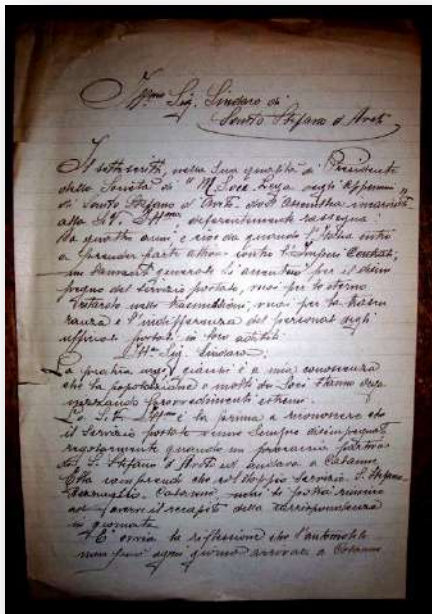 Ill.mo Sig. Sindaco di
Santo Stefano d'Aveto
Il sottoscritto, nella sua qualità di Presidente
della Società di M. Socc. Lega degli Appennini
di Santo Stefano d'Aveto dall'Assemblea incaricato
alla S.V. Ill.ma deferentemente rassegna:
Da quattro anni, e cioè da quando l'Italia entrò
a prender parte attiva contro l'Impero Centrale,
un lamento generale si assentua per il disim
pegno del servizio postale, vuoi per lo eterno
ritardo nelle trasmissioni, vuoi per la trascu
ranza e l'indifferenza del personale degli
uffici postali in loro adibiti.
Ill.mo Sig. Sindaco:
La pratica urge, giacchè è a mia conoscenza
che la popolazione e molti dei Soci stanno
provvedimenti estremi.
La S.V. Ill.ma è la prima a riconoscere che
il servizio postale venne sempre disimpegnato
regolarmente quando un procaccia partiva
da S. Stefano d'Aveto ed andava a
Ella comprende che col doppio servizio S. Stefano
non si potrà riuscire
ad avere il recapito della corrispondenza
in giornata.
E' ovvia la riflessione che l'automobile
non può ogni giorno arrivare a